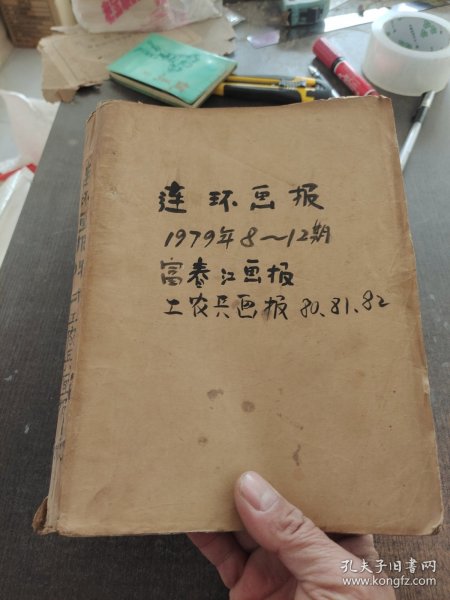 连环画报
1979年8~12期
富春江画报
工农兵画报 80、81、82
孔夫子旧书网
www.kongfz.com